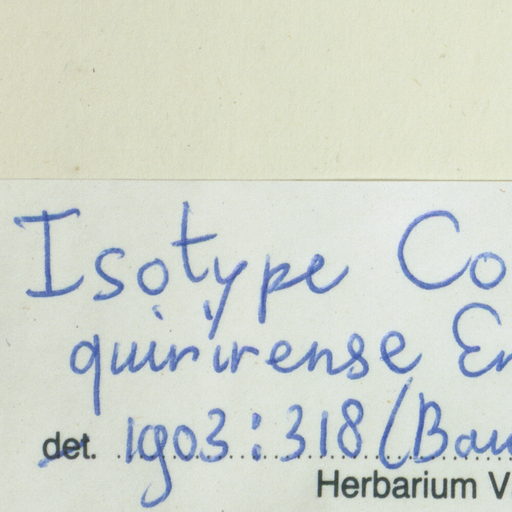 Isotype Co
quirirense En
det. 1903:318 (Bau
Herbarium V